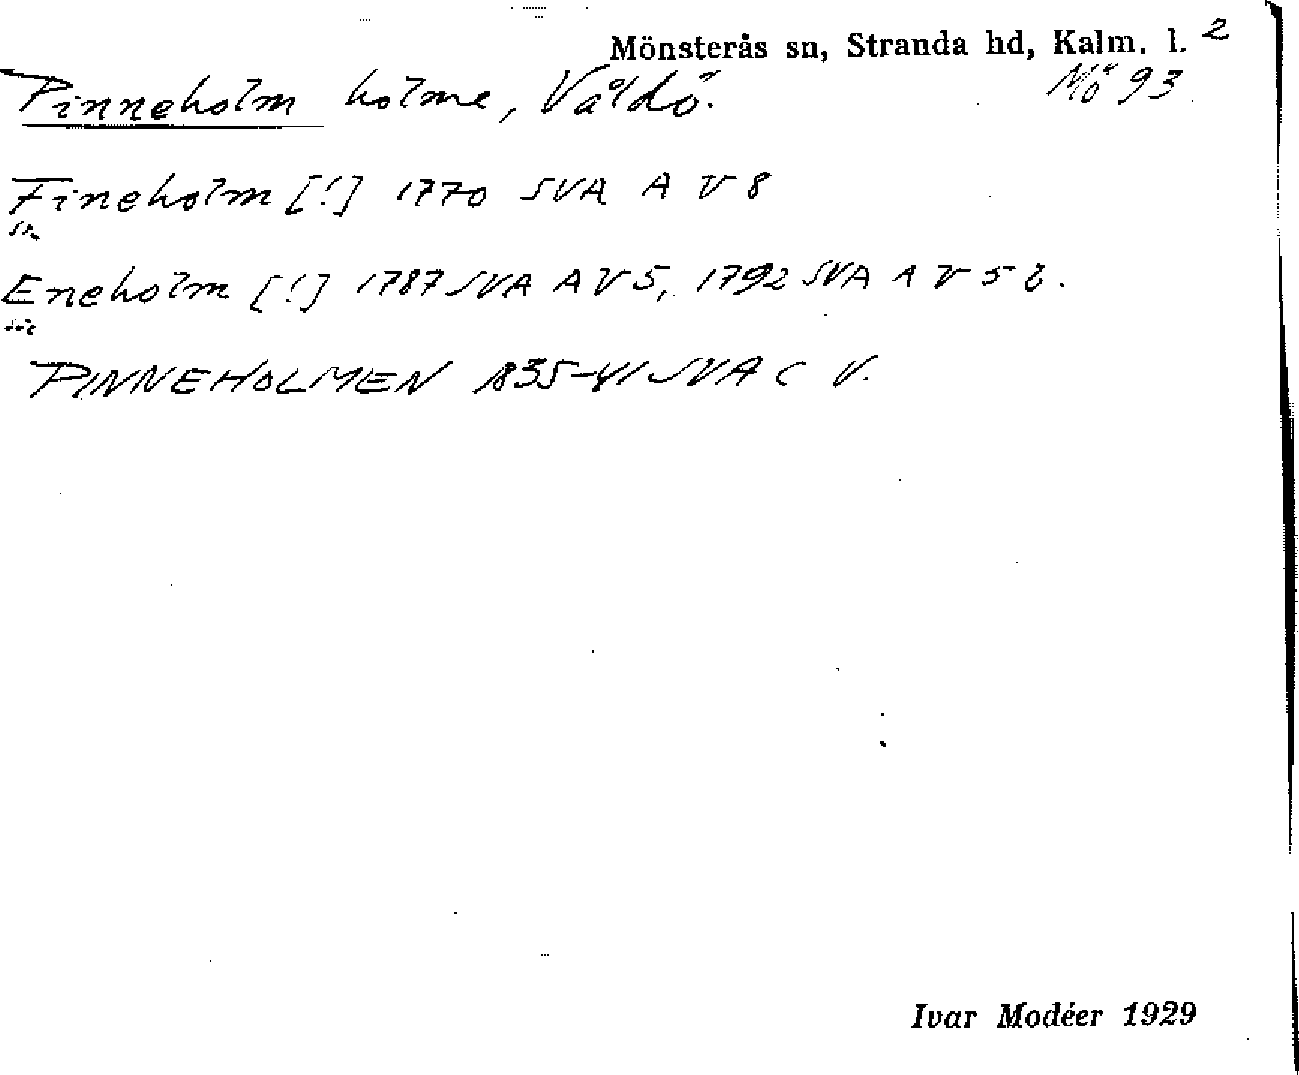 Mönsterås sn, Stranda hd, Kalm. l. 2
Mö 93
Pinneholm holme, Våldö.
Fineholm [!] 1770 SVA A V 8
Eneholm [!] 1787 SVA A V 5, 1792 SVA A V 5 b.
PINNEHOLMEN 1835-41 SVA C V.
Ivar Modéer 1929